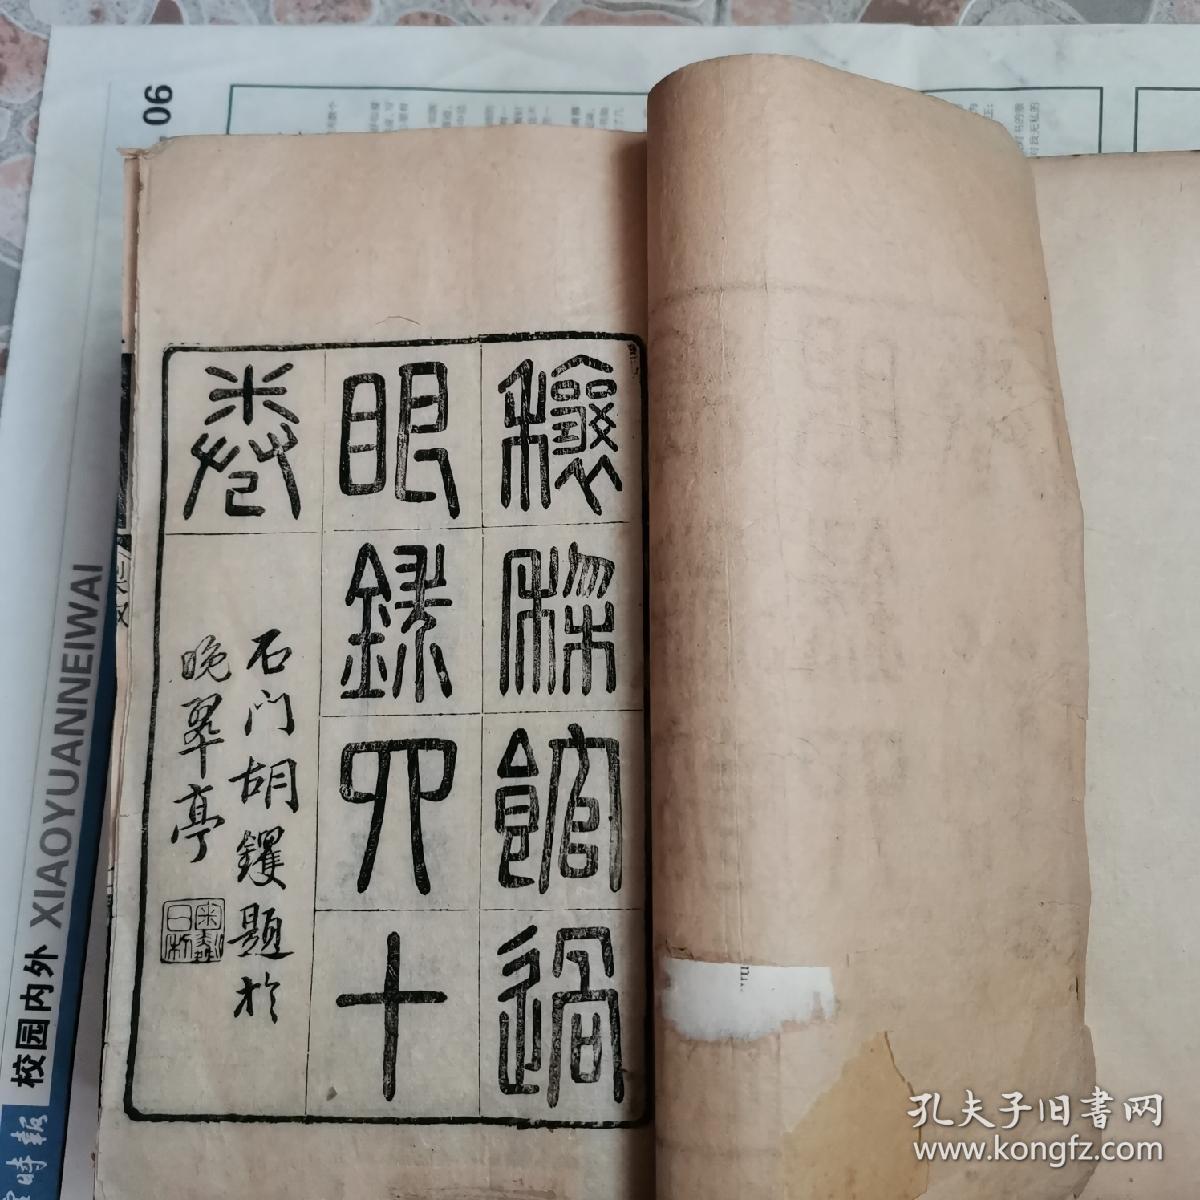 穰棃館過
眼錄四十
卷
石門胡钁題於
晚翠亭
06
XIAOYUANNEIWAI
校园内外
時報
孔夫子旧書网
www.kongfz.com